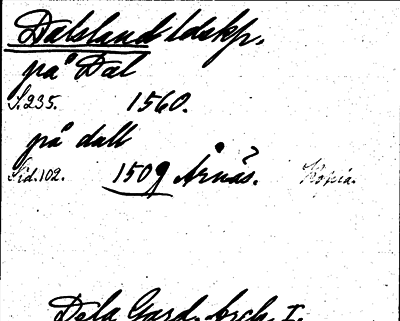 Dalsland ldskp.
på Dal
S.235. 1560.
på dall
Sid.102. 1509 Årnäs. Kopia.
Dela Gard. Arch. I.